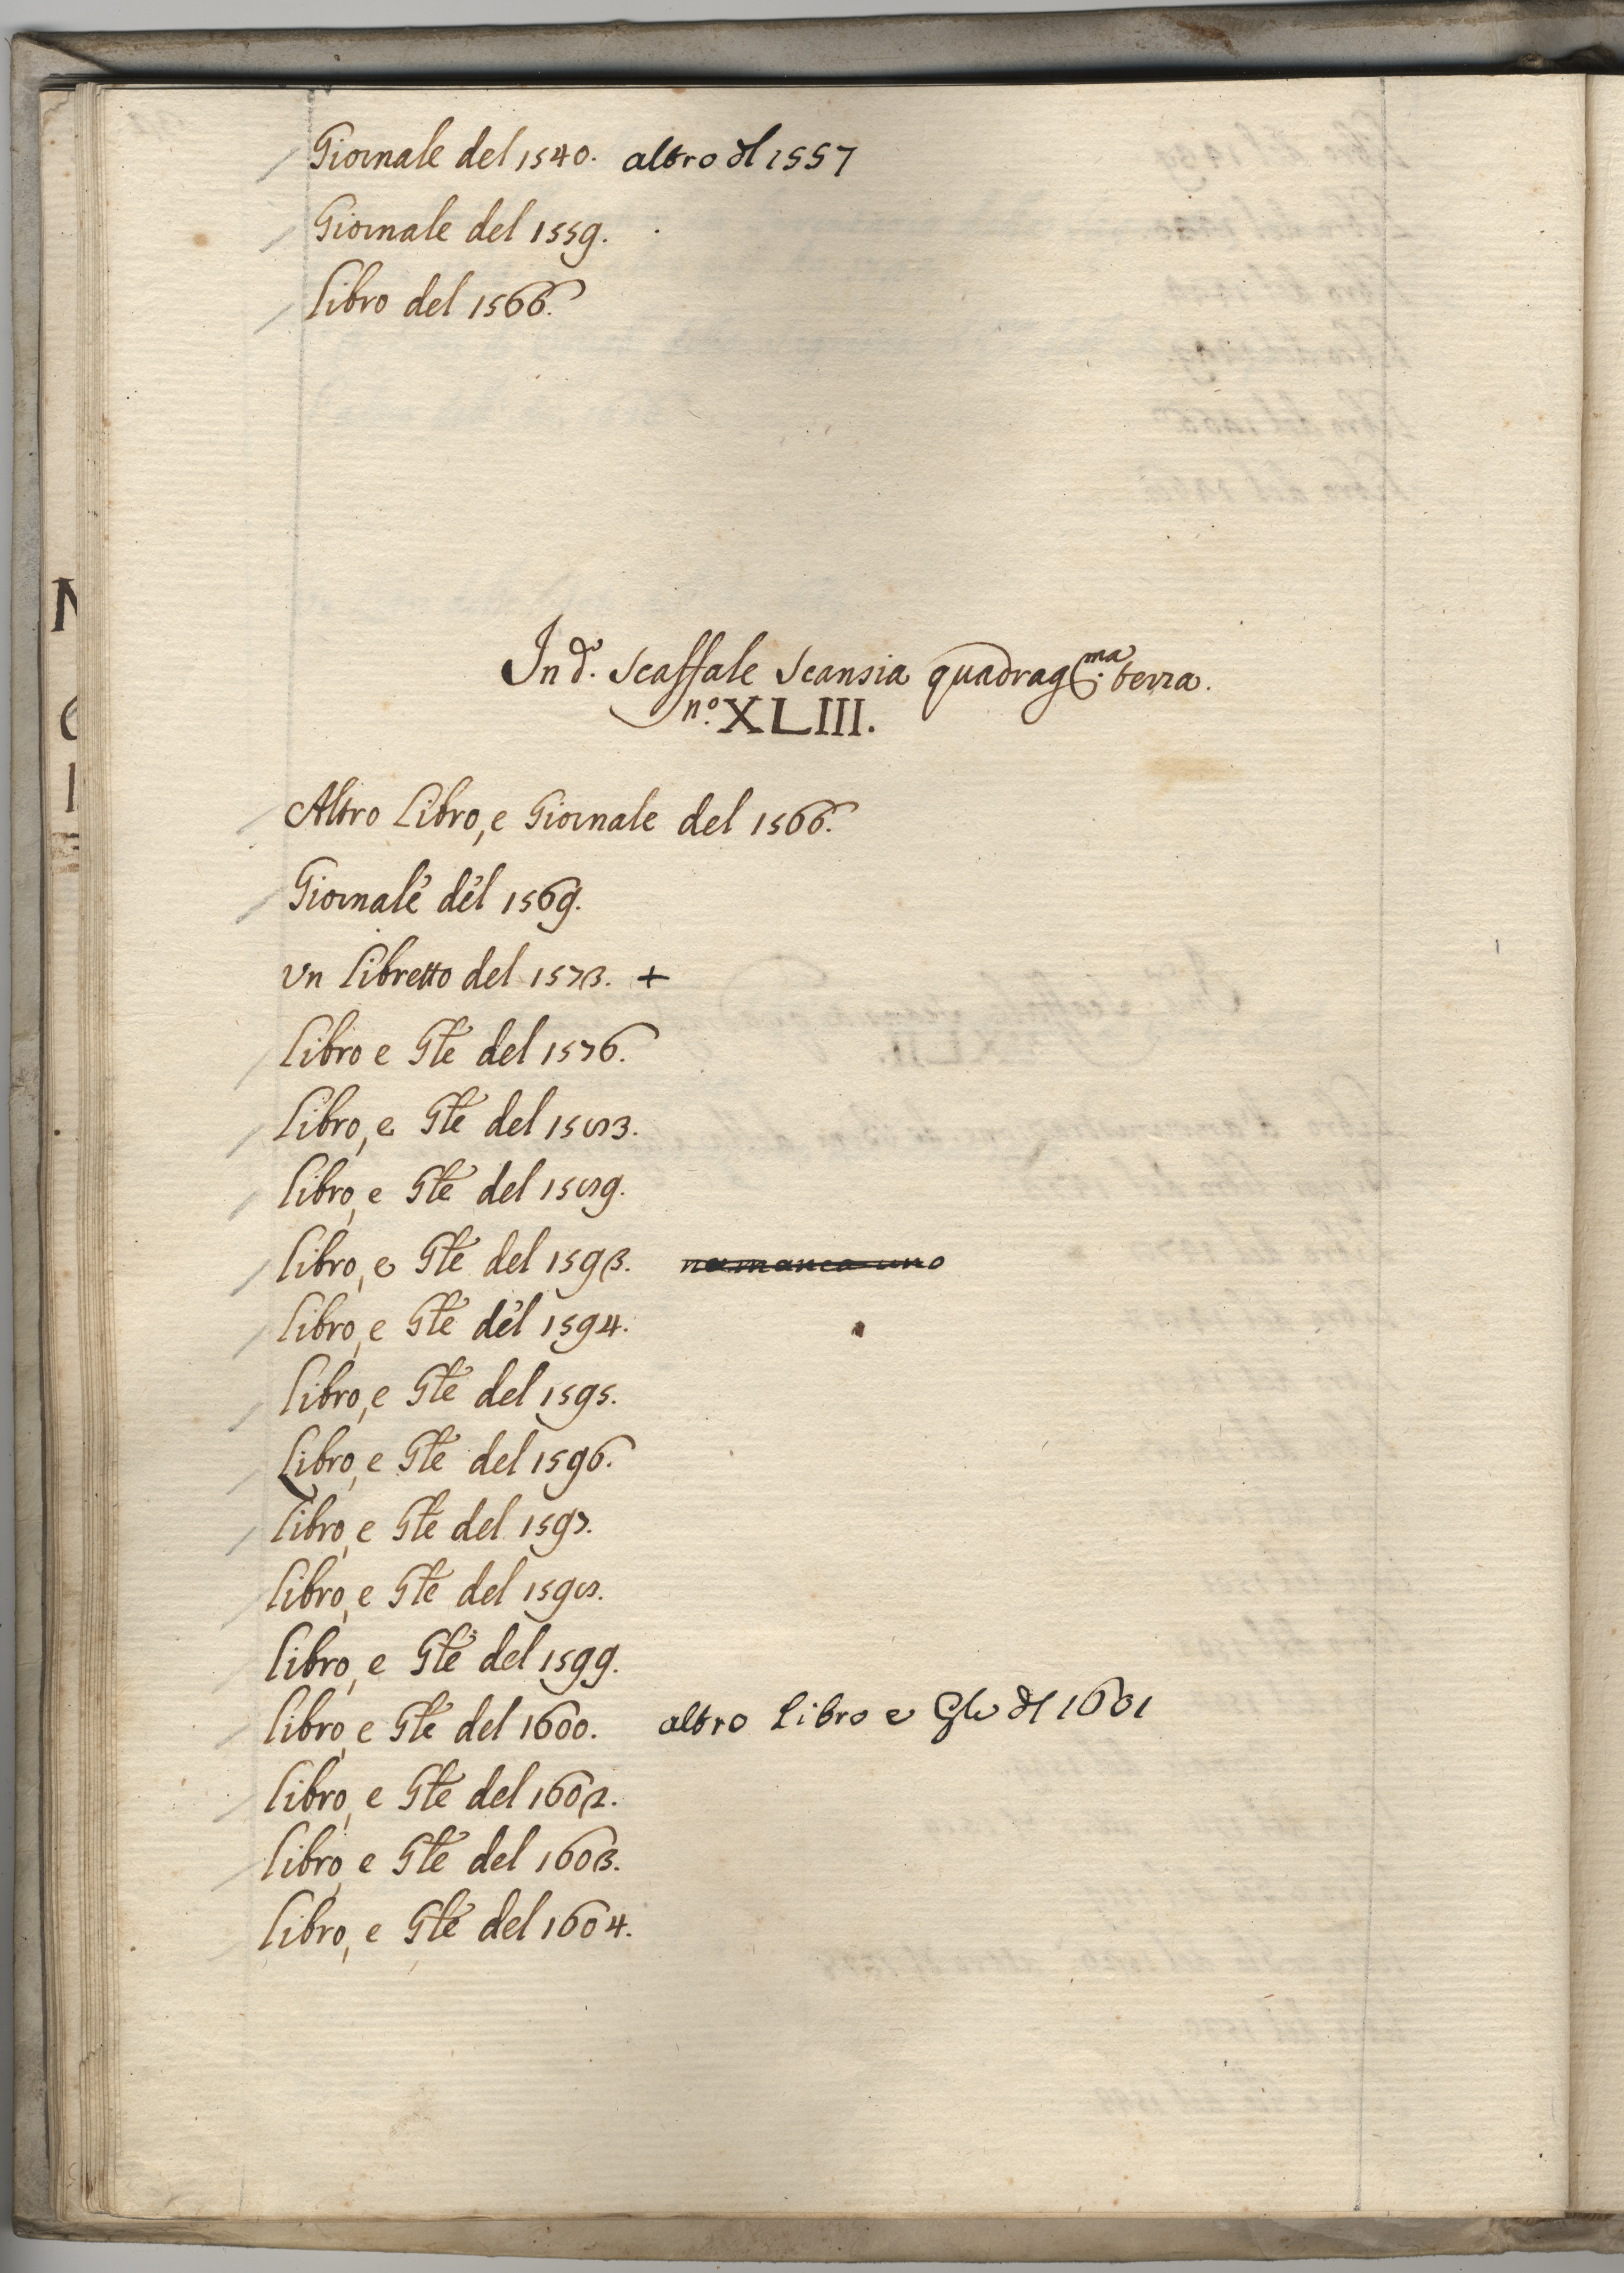 Giornale del 1540. altro dl 1557
Giornale del 1559.
Libro del 1566.
In d.º Scaffale Scansia quadrag.ma terza.
n.º XLIII.
Altro Libro, e Giornale del 1566.
Giornale del 1569.
Un Libretto del 1573. +
Libro e Gle del 1576.
Libro, e Gle del 1583.
Libro, e Gle del 1589.
Libro, e Gle del 1593. ne manca uno
Libro, e Gle del 1594.
Libro, e Gle del 1595.
Libro, e Gle del 1596.
Libro, e Gle del 1597.
Libro, e Gle del 1598.
Libro, e Gle del 1599.
Libro, e Gle del 1600. altro Libro e Gle dl 1601
Libro, e Gle del 1602.
Libro, e Gle del 1603.
Libro, e Gle del 1604.